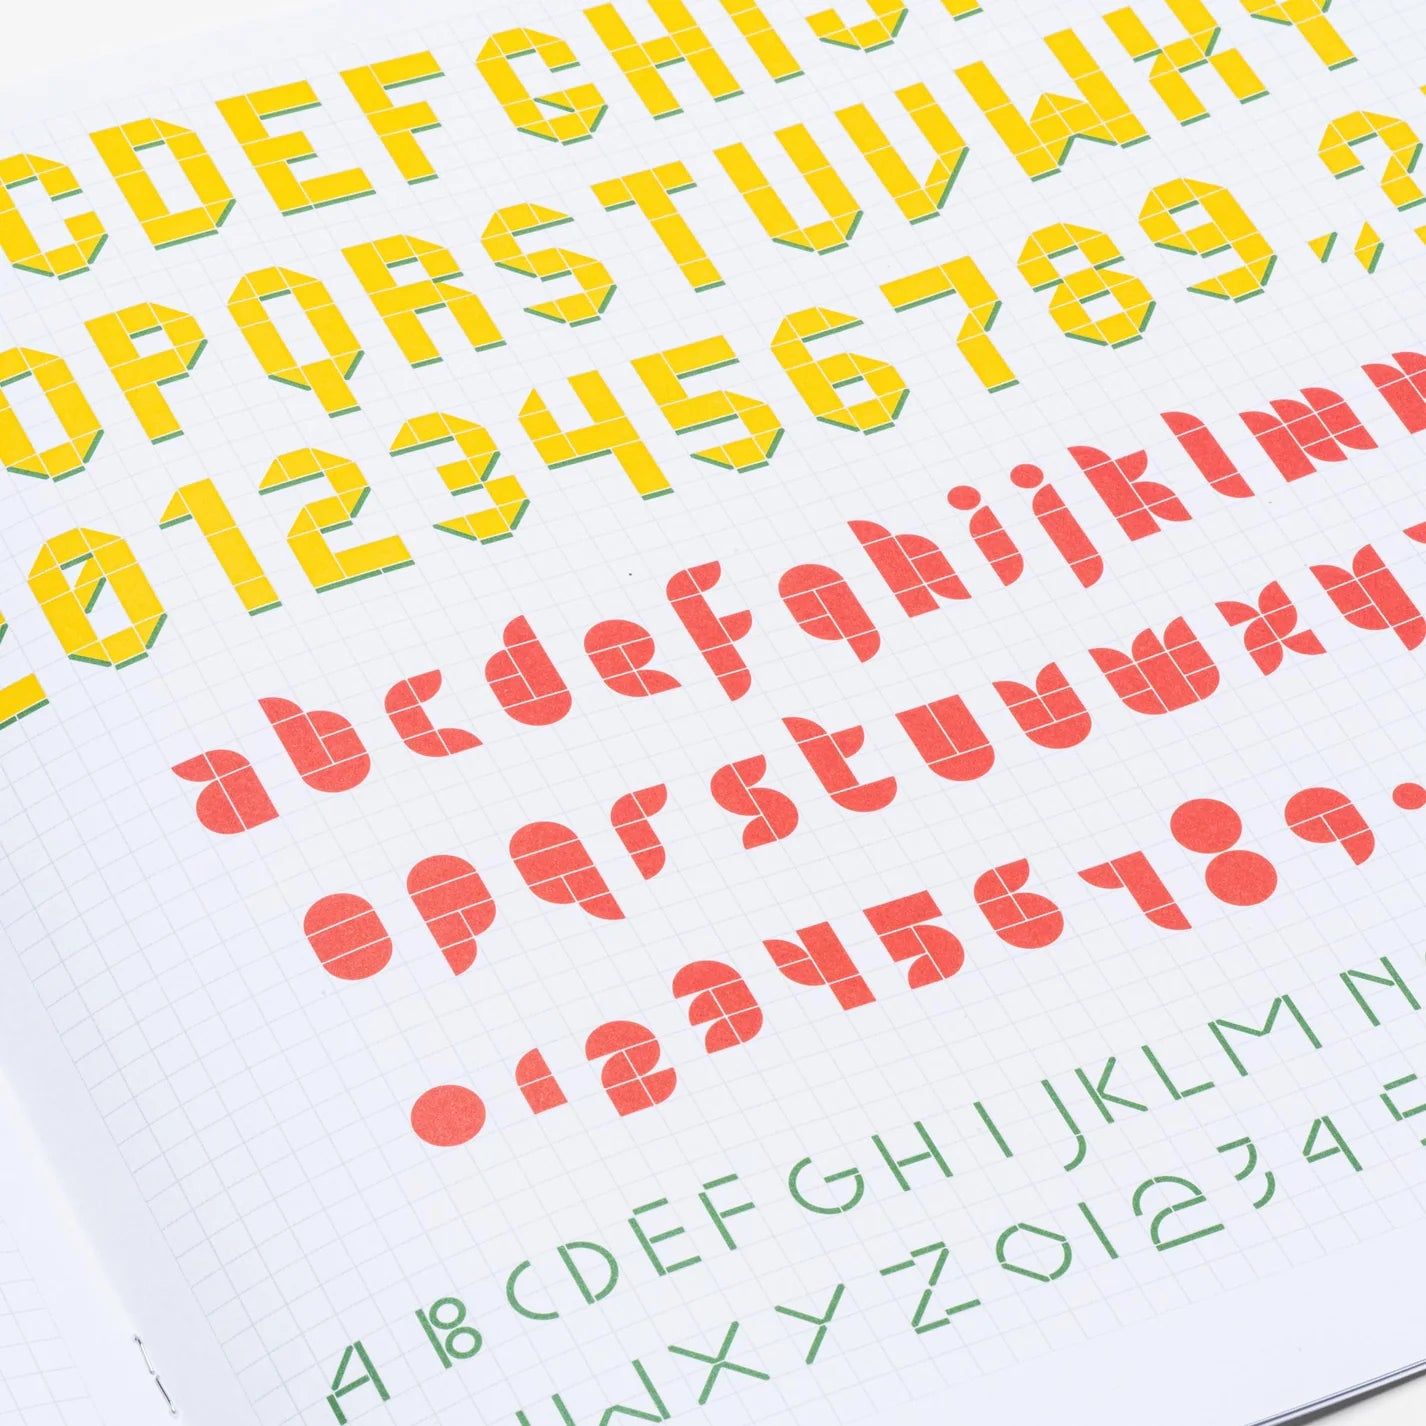 CDEFGHIJ
OPQRSTUVWXY
Z0123456789,?
abcdefghijklmn
opqrstuvwxyz
0123456789.
ABCDEFGHIJKLMN
WXYZ012345